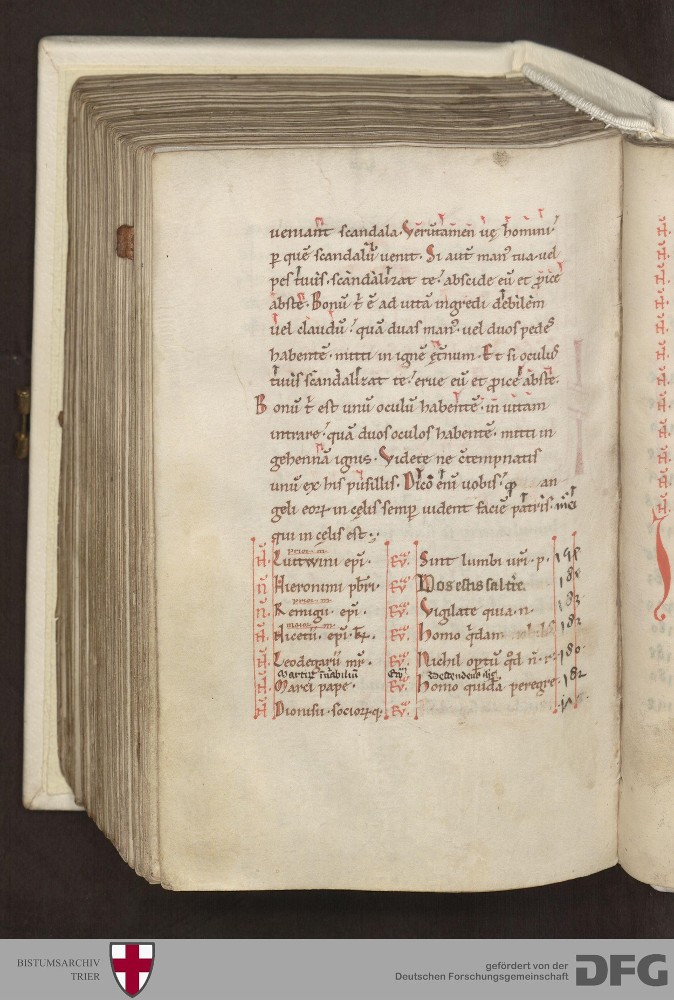 ueniant scandala. Verūtamen uę homini
p quē scandalū uenit. Si aut man᷒ tua uel
pes tuus scandalizat te: abscide eū et proice
abste. Bonū t ē ad uitā ingredi debilem
uel claudū: quā duas man᷒ uel duos pedes
habentē mitti in ignē ęternum. Et si oculus
tuus scandalizat te: erue eū et proice abste.
Bonū t est unū oculū habentē in uitam
intrare: quā duos oculos habentē mitti in
gehennā ignis. Videte ne ctempnatis
unū ex his pusillis. Dico enī uobis: q an
geli eorꝝ in cęlis semp uident faciē patris mei
qui in cęlis est.
Lutwini epi. Ev̄. Sint lumbi uri. p. 198
Hieronimi pbri. Ev̄. Vos estis sal tre.
Remigii epi. Ev̄. Vigilate quia n.
Nicetii epi. Ev̄. Homo qdam nobilis
Leodegarii mr. Ev̄. Nichil optū qd n. r. 180
Marci pape. Ev̄. Homo quidā peregre. 182
Dionisii sociorꝝq. Ev̄.
BISTUMSARCHIV
TRIER
gefördert von der
Deutschen Forschungsgemeinschaft
DFG